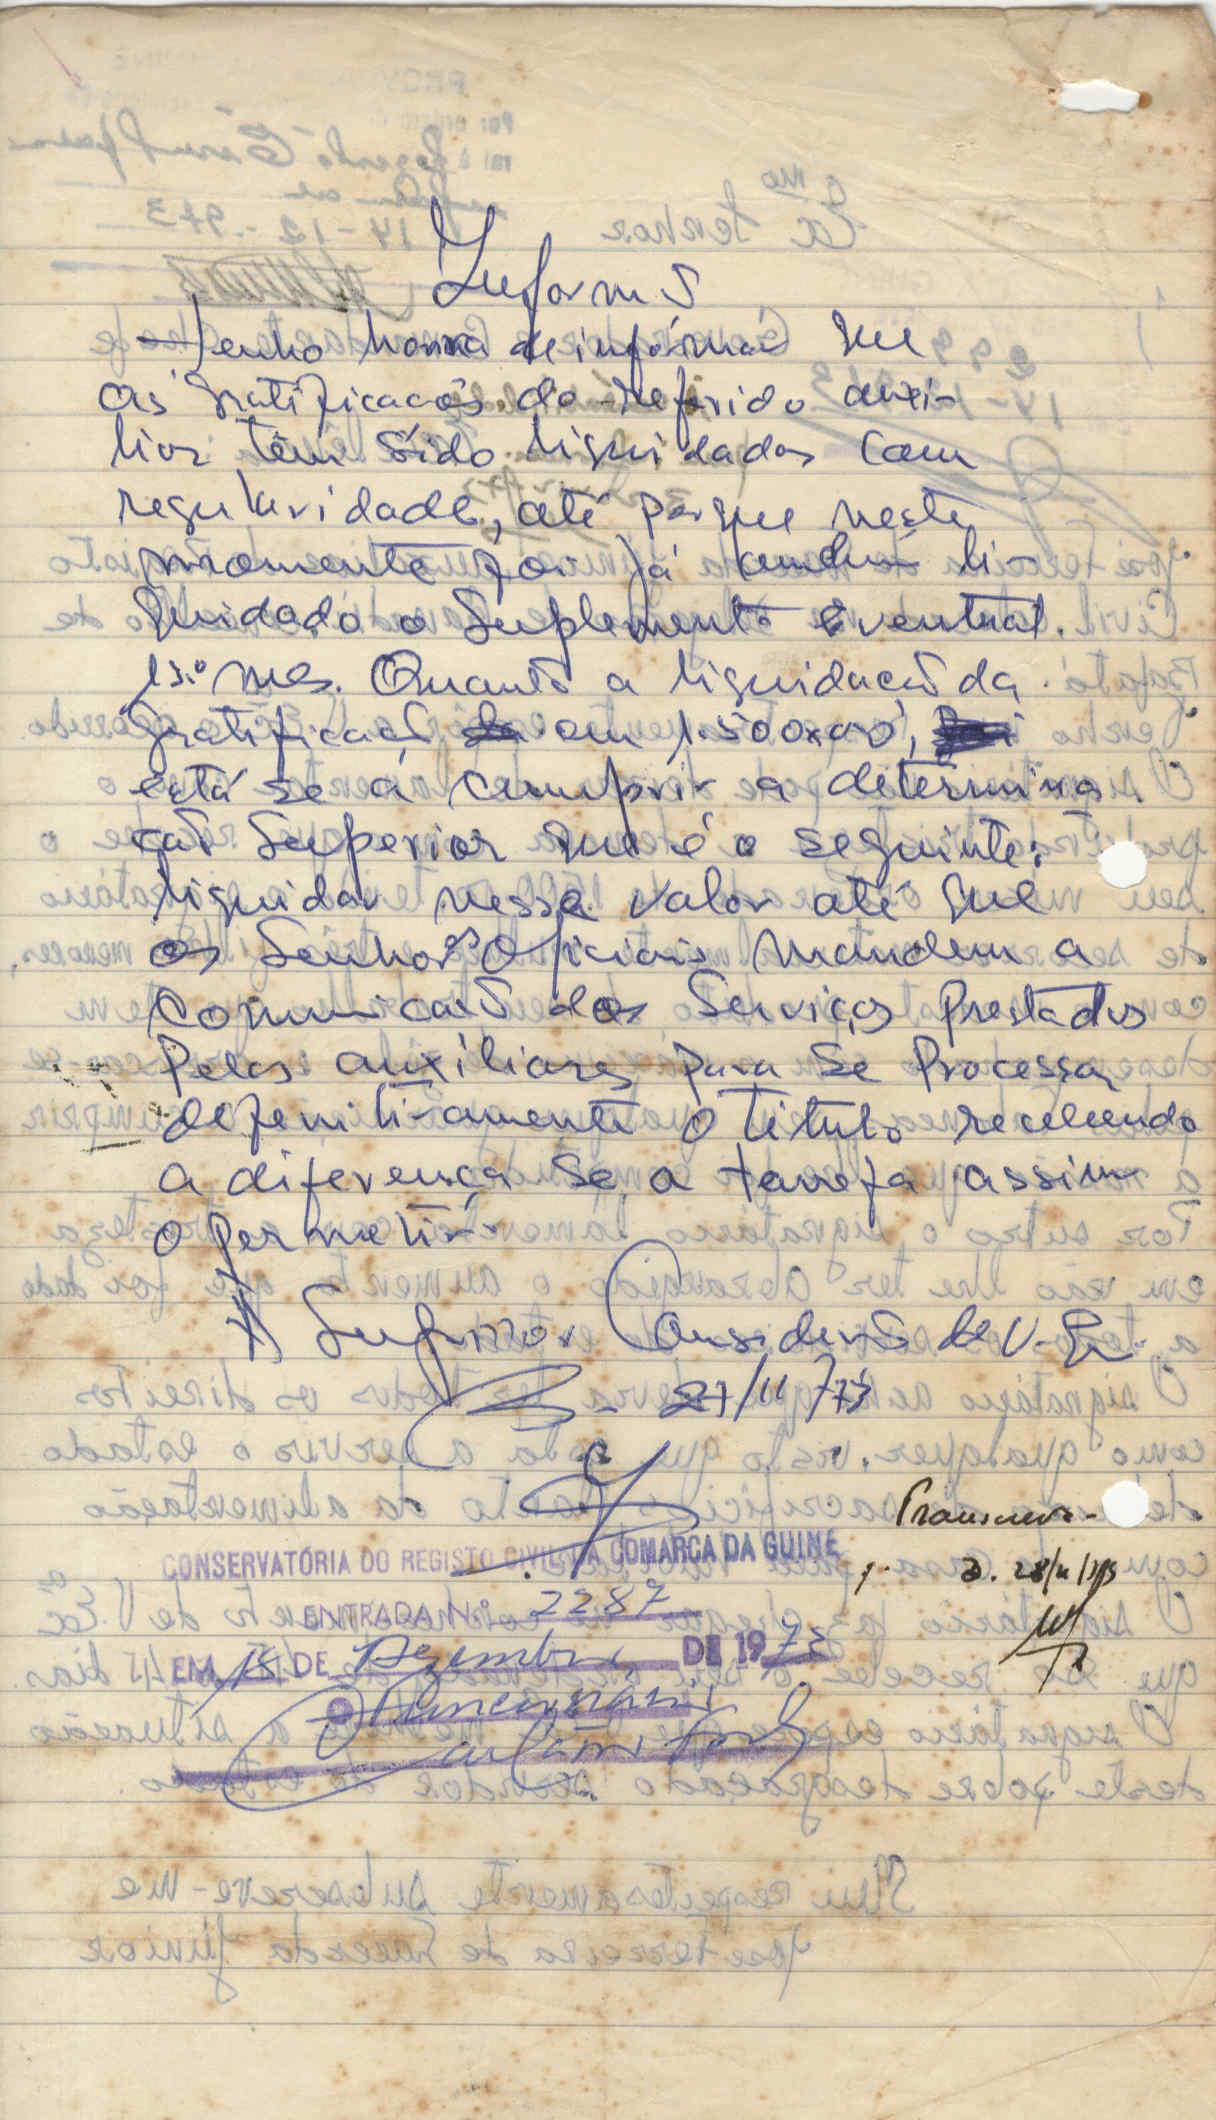 Informo
Tenho honra de informar que
as gratificacoēs do referido auxi-
liar têm sido liquidadas com
regularidade, até porque neste
momento foi já tambem li-
quidado o Suplemento Eventual.
13º mes. Quanto a liquidação da
gratificação em 1.500x00,
está se a cumprir a determina-
ção Superior que é o seguinte:
liquidar nesse valor até que
os Senhores Oficiais mandem a
comunicação dos Serviços prestados
pelos auxiliares para se processar
defenitivamente o titulo recebendo
a diferença se a tarefa assim
o permetir
À Superior Consideração de V. Ex.
27/11/73
Transcreva-
28/11/973
CONSERVATÓRIA DO REGISTO CIVIL DA COMARCA DA GUINÉ
ENTRADA Nº 2287
EM 15 DE Dezembro DE 1973
O Funcionário